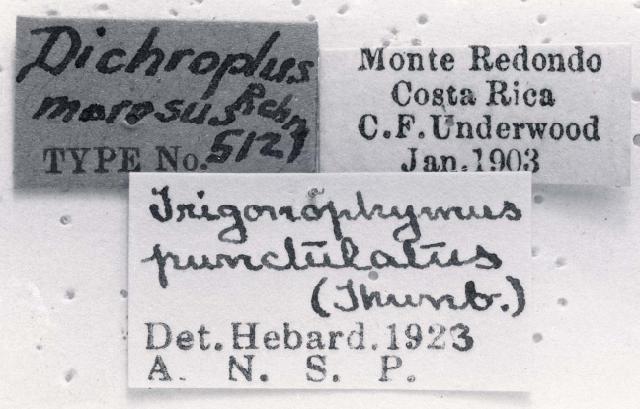 Dichroplus
morosus Rehn
TYPE No. 5129
Monte Redondo
Costa Rica
C.F. Underwood
Jan. 1903
Trigonophymus
punctulatus
(Thunb.)
Det. Hebard. 1923
A. N. S. P.